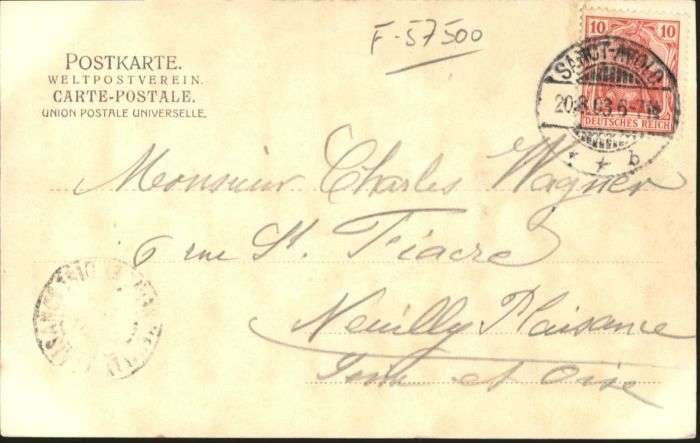 F-57500
POSTKARTE.
WELTPOSTVEREIN.
CARTE-POSTALE.
UNION POSTALE UNIVERSELLE.
10 10
DEUTSCHES REICH
SANCT-AVOLD
20.8.03.6-7N.
* * b
Monsieur Charles Wagner
6 rue St. Fiacre
Neuilly Plaisance
Seine et Oise